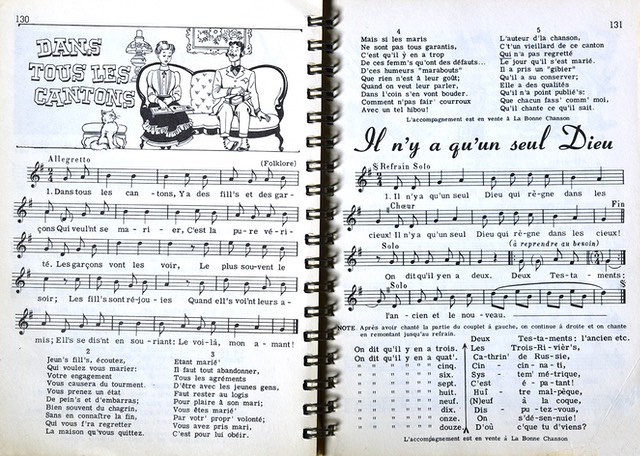 130
DANS
TOUS LES
CANTONS
Allegretto
(Folklore)
1. Dans tous les can - tons, Y a des fill's et des gar-
çons Qui veul'nt se ma - ri - er, C'est la pu - re vé - ri-
té. Les garçons vont les voir, Le plus sou-vent le
soir; Les fill's sont ré-jou - ies Quand ell's voi'nt leurs a-
mis; Ell's se dis'nt en sou - riant; Le voi-là, mon a - mant!
2
Jeun's fill's, écoutez,
Qui voulez vous marier:
Votre engagement
Vous causera du tourment.
Vous prenez un état
De pein's et d'embarras;
Bien souvent du chagrin,
Sans en connaître la fin,
Qui vous f'ra regretter
La maison qu'vous quittez.
3
Etant marié'
Il faut tout abandonner,
Tous les agréments
D'être avec les jeunes gens,
Faut rester au logis
Pour plaire à son mari;
Vous êtes marié'
Par votr' propr' volonté;
Vous avez pris mari,
C'est pour lui obéir.
131
4
Mais si les maris
Ne sont pas tous garantis,
C'est qu'il y en a trop
De ces femm's qu'ont des défauts...
D'ces humeurs "marabouts"
Que rien n'est à leur goût;
Quand on veut leur parler,
Dans l'coin s'en vont bouder.
Comment n'pas fair' courroux
Avec un tel hibou!
5
L'auteur d'la chanson,
C't'un vieillard de ce canton
Qui n'a pas regretté
Le jour qu'il s'est marié.
Il a pris un "gibier"
Qu'il a su conserver;
Elle a des qualités
Qu'il n'a point publié's:
Que chacun fass' comm' moi,
Qu'il chante ce qu'il sait.
L'accompagnement est en vente à La Bonne Chanson
Il n'y a qu'un seul Dieu
Refrain Solo
1. Il n'y a qu'un seul Dieu qui rè-gne dans les
Chœur
Fin
cieux! Il n'y a qu'un seul Dieu qui rè-gne dans les cieux!
Solo
(à reprendre au besoin)
On dit qu'il y en a deux. Deux Tes-ta - ments;
Solo
l'an - cien et le nou - veau.
NOTE Après avoir chanté la partie du couplet à gauche, on continue à droite et on chante
en remontant jusqu'au refrain.
Deux Tes-ta-ments; l'ancien etc.
On dit qu'il y en a trois. Les Trois-Ri-vièr's,
On dit qu'il y en a quat'. Ca-thrin' de Rus-sie,
" " " " cinq. Cin - cin - na - ti,
" " " " six. Sys - tem' mé-trique,
" " " " sept. C'est é - pa - tant!
" " " " huit. Huî tre mal-pèque,
" " " " neuf. (Neu)f à la coque,
" " " " dix. Dis - pu - tez-vous,
" " " " onze. On s'dé-sen-nuie!
" " " " douze. D'où c'que tu d'viens?
L'accompagnement est en vente à La Bonne Chanson